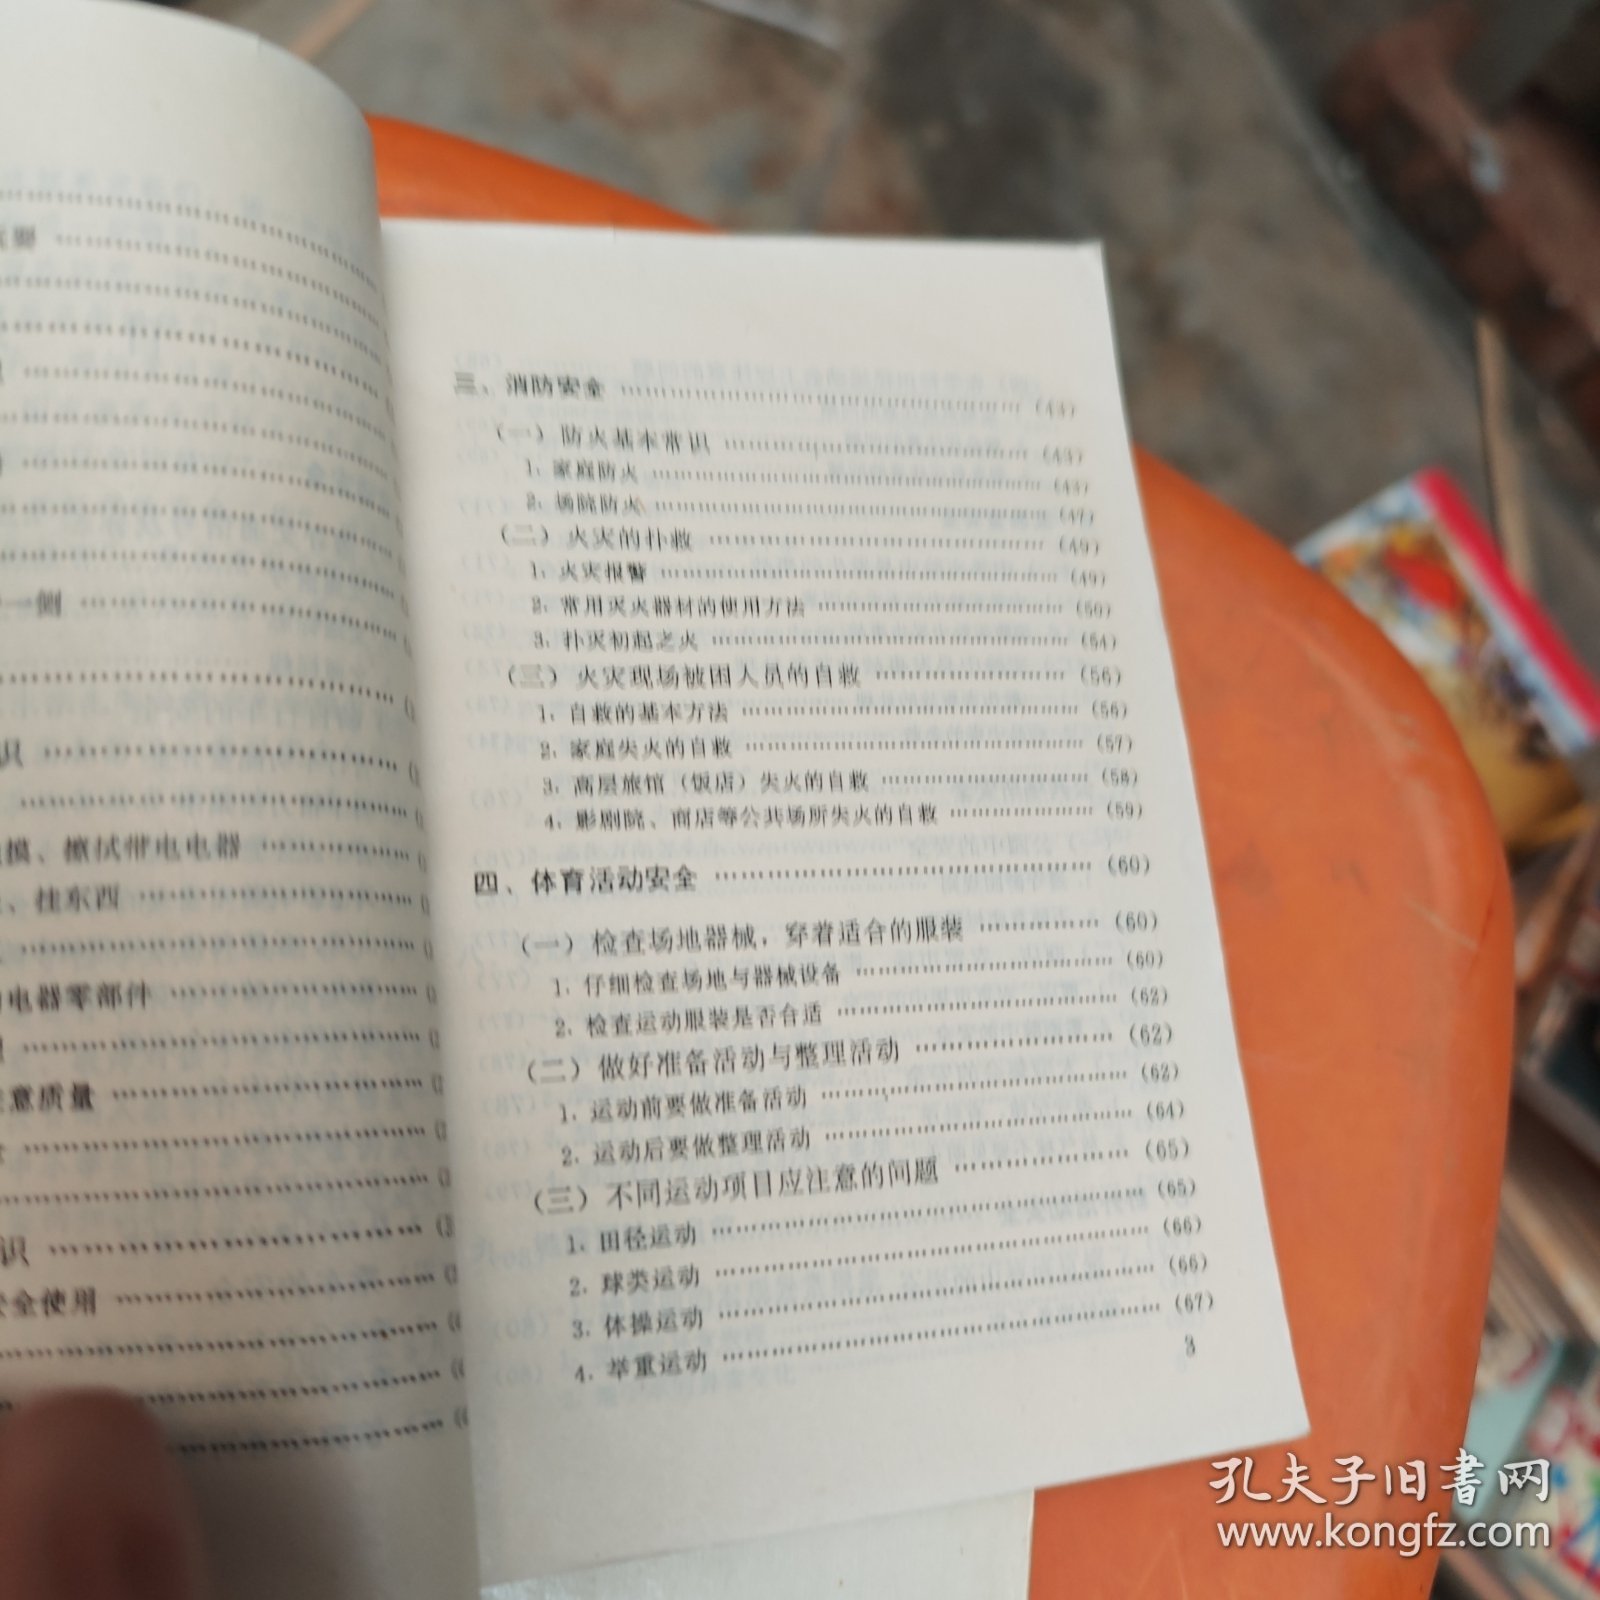 识
摸、擦拭带电电器
、挂东西
电器零部件
意质量
识
全使用
三、消防安全 (43)
(一) 防火基本常识 (43)
1. 家庭防火 (43)
2. 场院防火 (47)
(二) 火灾的扑救 (49)
1. 火灾报警 (49)
2. 常用灭火器材的使用方法 (50)
3. 扑灭初起之火 (54)
(三) 火灾现场被困人员的自救 (56)
1. 自救的基本方法 (56)
2. 家庭失火的自救 (57)
3. 高层旅馆(饭店)失火的自救 (58)
4. 影剧院、商店等公共场所失火的自救 (59)
四、体育活动安全 (60)
(一) 检查场地器械,穿着适合的服装 (60)
1. 仔细检查场地与器械设备 (60)
2. 检查运动服装是否合适 (62)
(二) 做好准备活动与整理活动 (62)
1. 运动前要做准备活动 (62)
2. 运动后要做整理活动 (64)
(三) 不同运动项目应注意的问题 (65)
1. 田径运动 (65)
2. 球类运动 (66)
3. 体操运动 (66)
4. 举重运动 (67)
3
孔夫子旧书网
www.kongfz.com